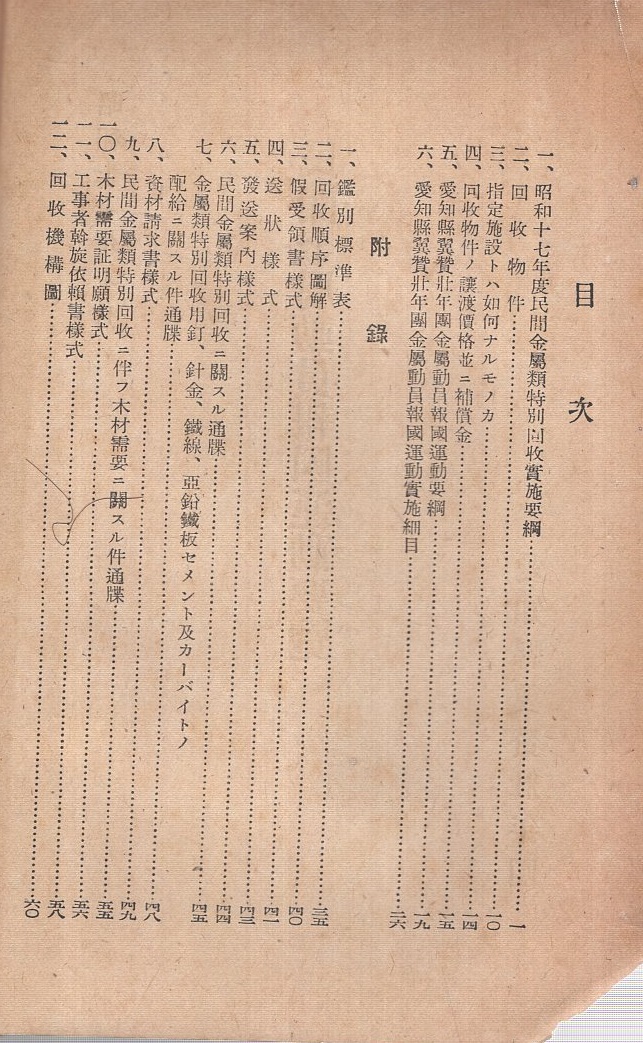 目次
一、昭和十七年度民間金屬類特別回收實施要綱……一
二、回收物件……一〇
三、指定施設トハ如何ナルモノカ……一四
四、回收物件ノ讓渡價格並ニ補償金……一五
五、愛知縣翼贊壯年團金屬動員報國運動要綱……一九
六、愛知縣翼贊壯年團金屬動員報國運動實施細目……二六
附錄
一、鑑別標準表……三五
二、回收順序圖解……四〇
三、假受領書樣式……四一
四、送狀樣式……四三
五、發送案內樣式……四四
六、民間金屬類特別回收ニ關スル通牒……四五
七、金屬類特別回收用釘、針金、鐵線、亞鉛鐵板セメント及カーバイトノ
配給ニ關スル件通牒……四八
八、資材請求書樣式……四九
九、民間金屬類特別回收ニ伴フ木材需要ニ關スル件通牒……五五
一〇、木材需要証明願樣式……五六
一一、工事者斡旋依賴書樣式……五八
一二、回收機構圖……六〇